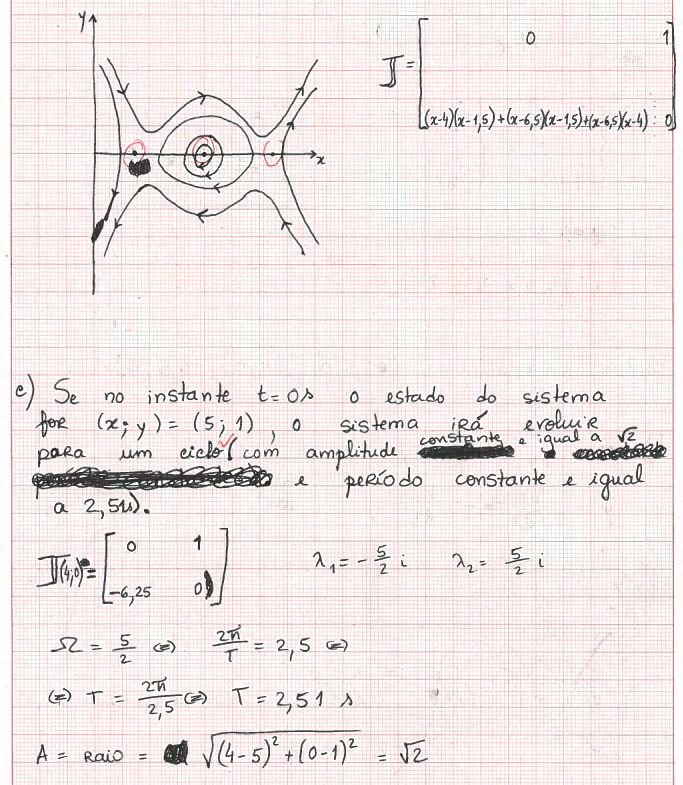 y
x
J = [ 0 1
(x-4)(x-1,5)+(x-6,5)(x-1,5)+(x-6,5)(x-4) 0 ]
e) Se no instante t=0s o estado do sistema
for (x; y) = (5; 1), o sistema irá evoluir
para um ciclo (com amplitude constante e igual a √2
e período constante e igual
a 2,51s).
J(4;0) = [ 0 1
-6,25 0 ]
λ₁ = -5/2 i λ₂ = 5/2 i
Ω = 5/2 ⇔ 2π/T = 2,5 ⇔
⇔ T = 2π/2,5 ⇔ T = 2,51 s
A = raio = √((4-5)² + (0-1)²) = √2